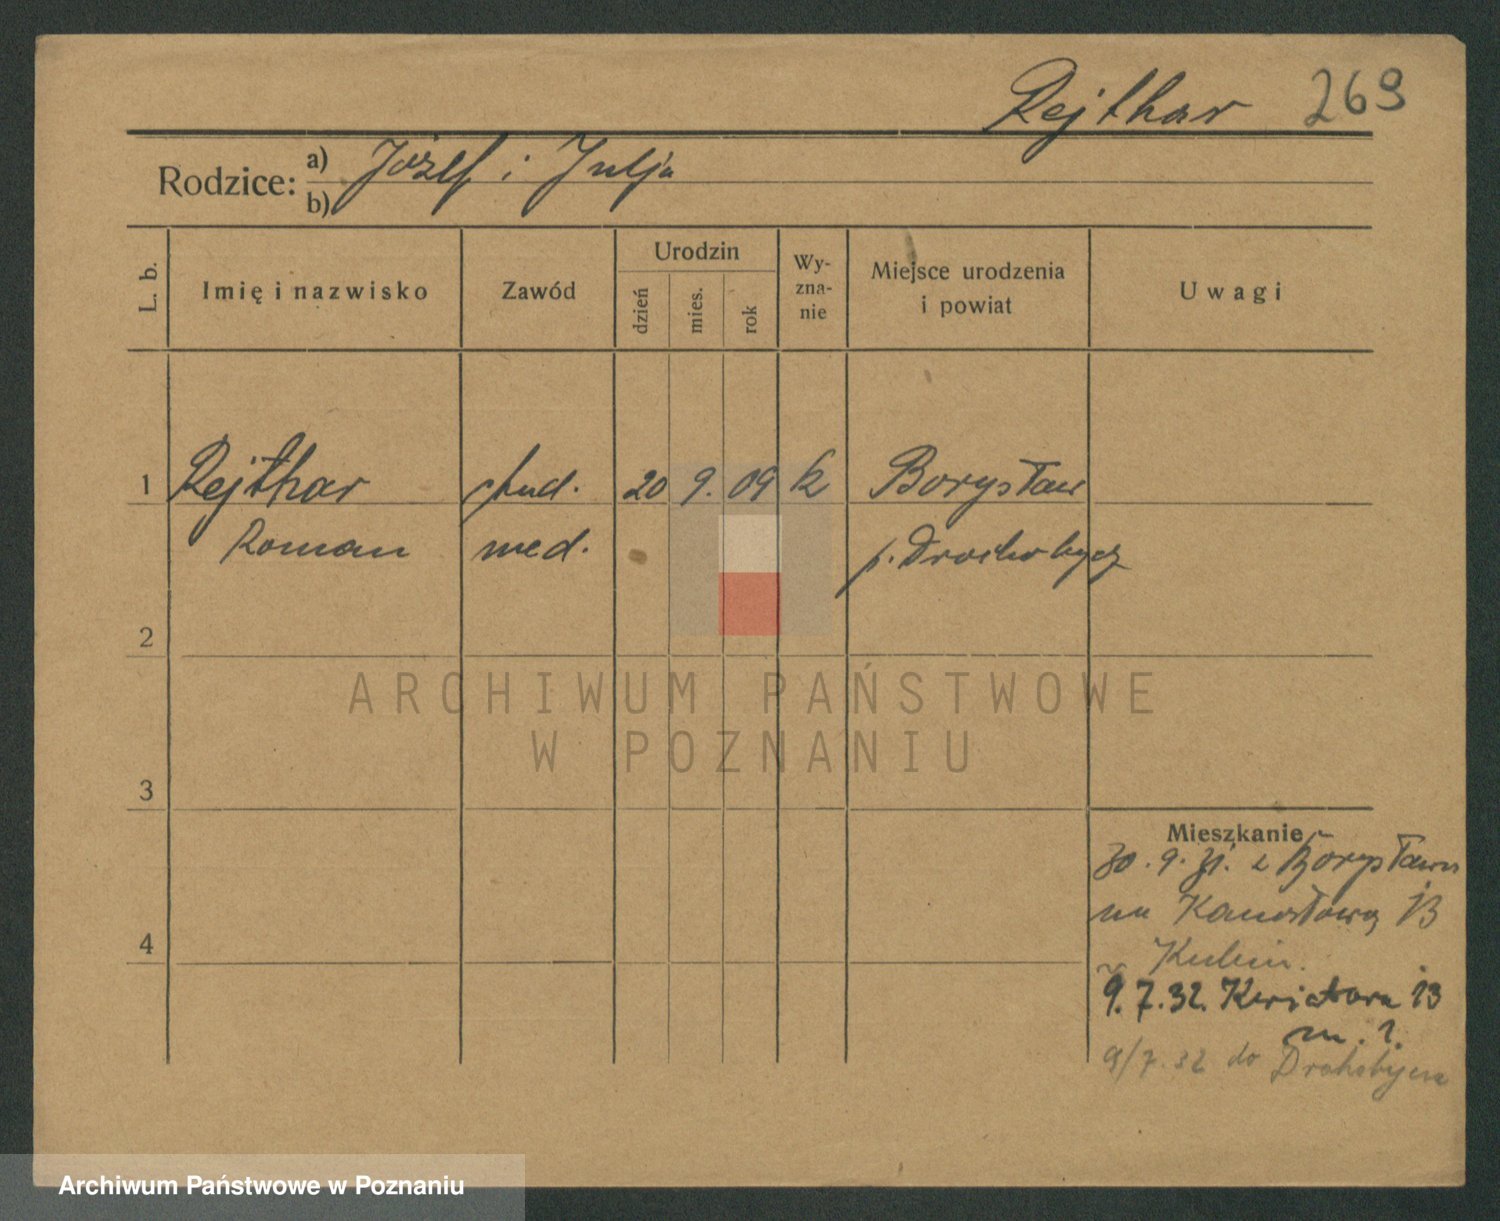 Rejthar 269
Rodzice: a) Józef i Julja
b)
L. b.
Imię i nazwisko
Zawód
Urodzin
dzień
mies.
rok
Wy-
zna-
nie
Miejsce urodzenia
i powiat
Uwagi
1 Rejthar stud. 20 9. 09 k Borysław
Roman med. p. Drohobycz
2
ARCHIWUM PAŃSTWOWE
W POZNANIU
3
Mieszkanie
30. 9. 31. z Borysławia
na 13
4
9.7.32. 13
m. 1.
9/7.32 do Drohobycza
Archiwum Państwowe w Poznaniu